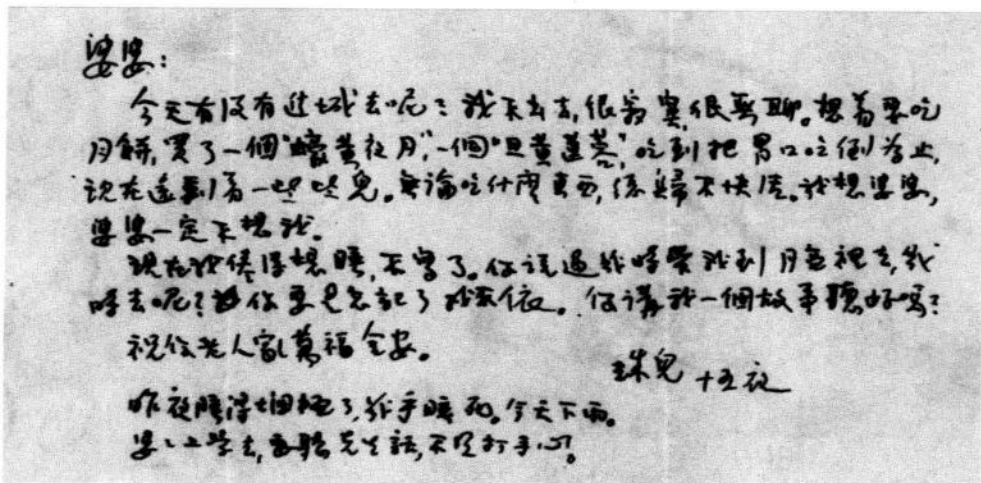 婆婆：
今天有没有進城去呢？我不出去，很寂寞，很無聊。想着要吃
月餅，買了一個“黄夜月”，一個“旦黄蓮蓉”，吃到把胃口吃倒為止，
現在還剩着一些些兒。無論吃什麽東西，總歸不快活。我想婆婆，
婆婆一定不想我。
現在我倦得想睡，不寫了。你說過幾時帶我到月亮裡去，幾
時去呢？你要是忘記了我不依。你講我一個故事聽好嗎？
祝你老人家萬福金安。
珠兒 十五夜
昨夜睡得極了，幾乎睡死。今天下雨。
婆婆上學去，要聽先生話，不打手心。